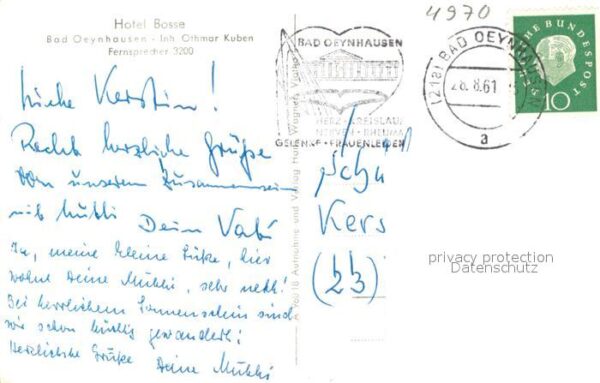 Hotel Bosse
Bad Oeynhausen - Inh. Othmar Kuben
Fernsprecher 3200
Liebe Kerstin!
Recht herzliche Grüße
von unserem Zusammensein
mit Mutti Dein Vati
Ja, meine kleine, hier
wohnt Deine Mutti, sehr nett!
Bei herrlichem Sonnenschein sind
wir schon tüchtig gewandert!
Herzlichste Grüße Deine Mutti
A 960/18 Aufnahme und Verlag Wagner
4970
BAD OEYNHAUSEN
HERZ - KREISLAUF
NERVEN - RHEUMA
GELENK - FRAUENLEIDEN
(21a) BAD OEYNHAUSEN
28.8.61
a
DEUTSCHE BUNDESPOST
10
Kers
(23)
privacy protection
Datenschutz